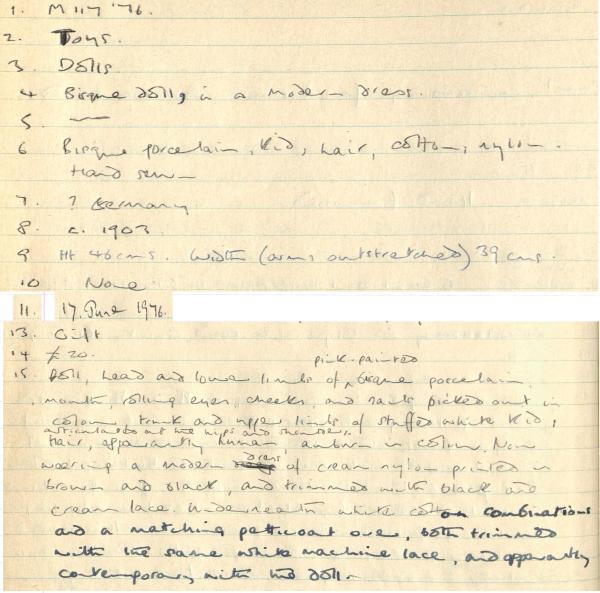 1. M 117 '76.
2. Toys.
3. Dolls
4 Bisque doll, in a modern dress.
5. —
6 Bisque porcelain, kid, hair, cotton, nylon.
Hand sewn
7. ? Germany
8. c. 1903
9 Ht 46 cms. Width (arms outstretched) 39 cms.
10 None
11. 17. June 1976.
13. Gift
14 £20.
pink-painted
15. Doll, head and lower limbs of ^ bisque porcelain.
mouth, rolling eyes, cheeks, and nails picked out in
colour, trunk and upper limbs of stuffed white kid,
articulated at the hips and shoulders,
Hair, apparently human, auburn in colour. Now
dress
wearing a modern of cream nylon printed in
brown and black, and trimmed with black and
cream lace. Underneath white cotton combinations
and a matching petticoat over, both trimmed
with the same white machine lace, and apparently
contemporary with the doll.